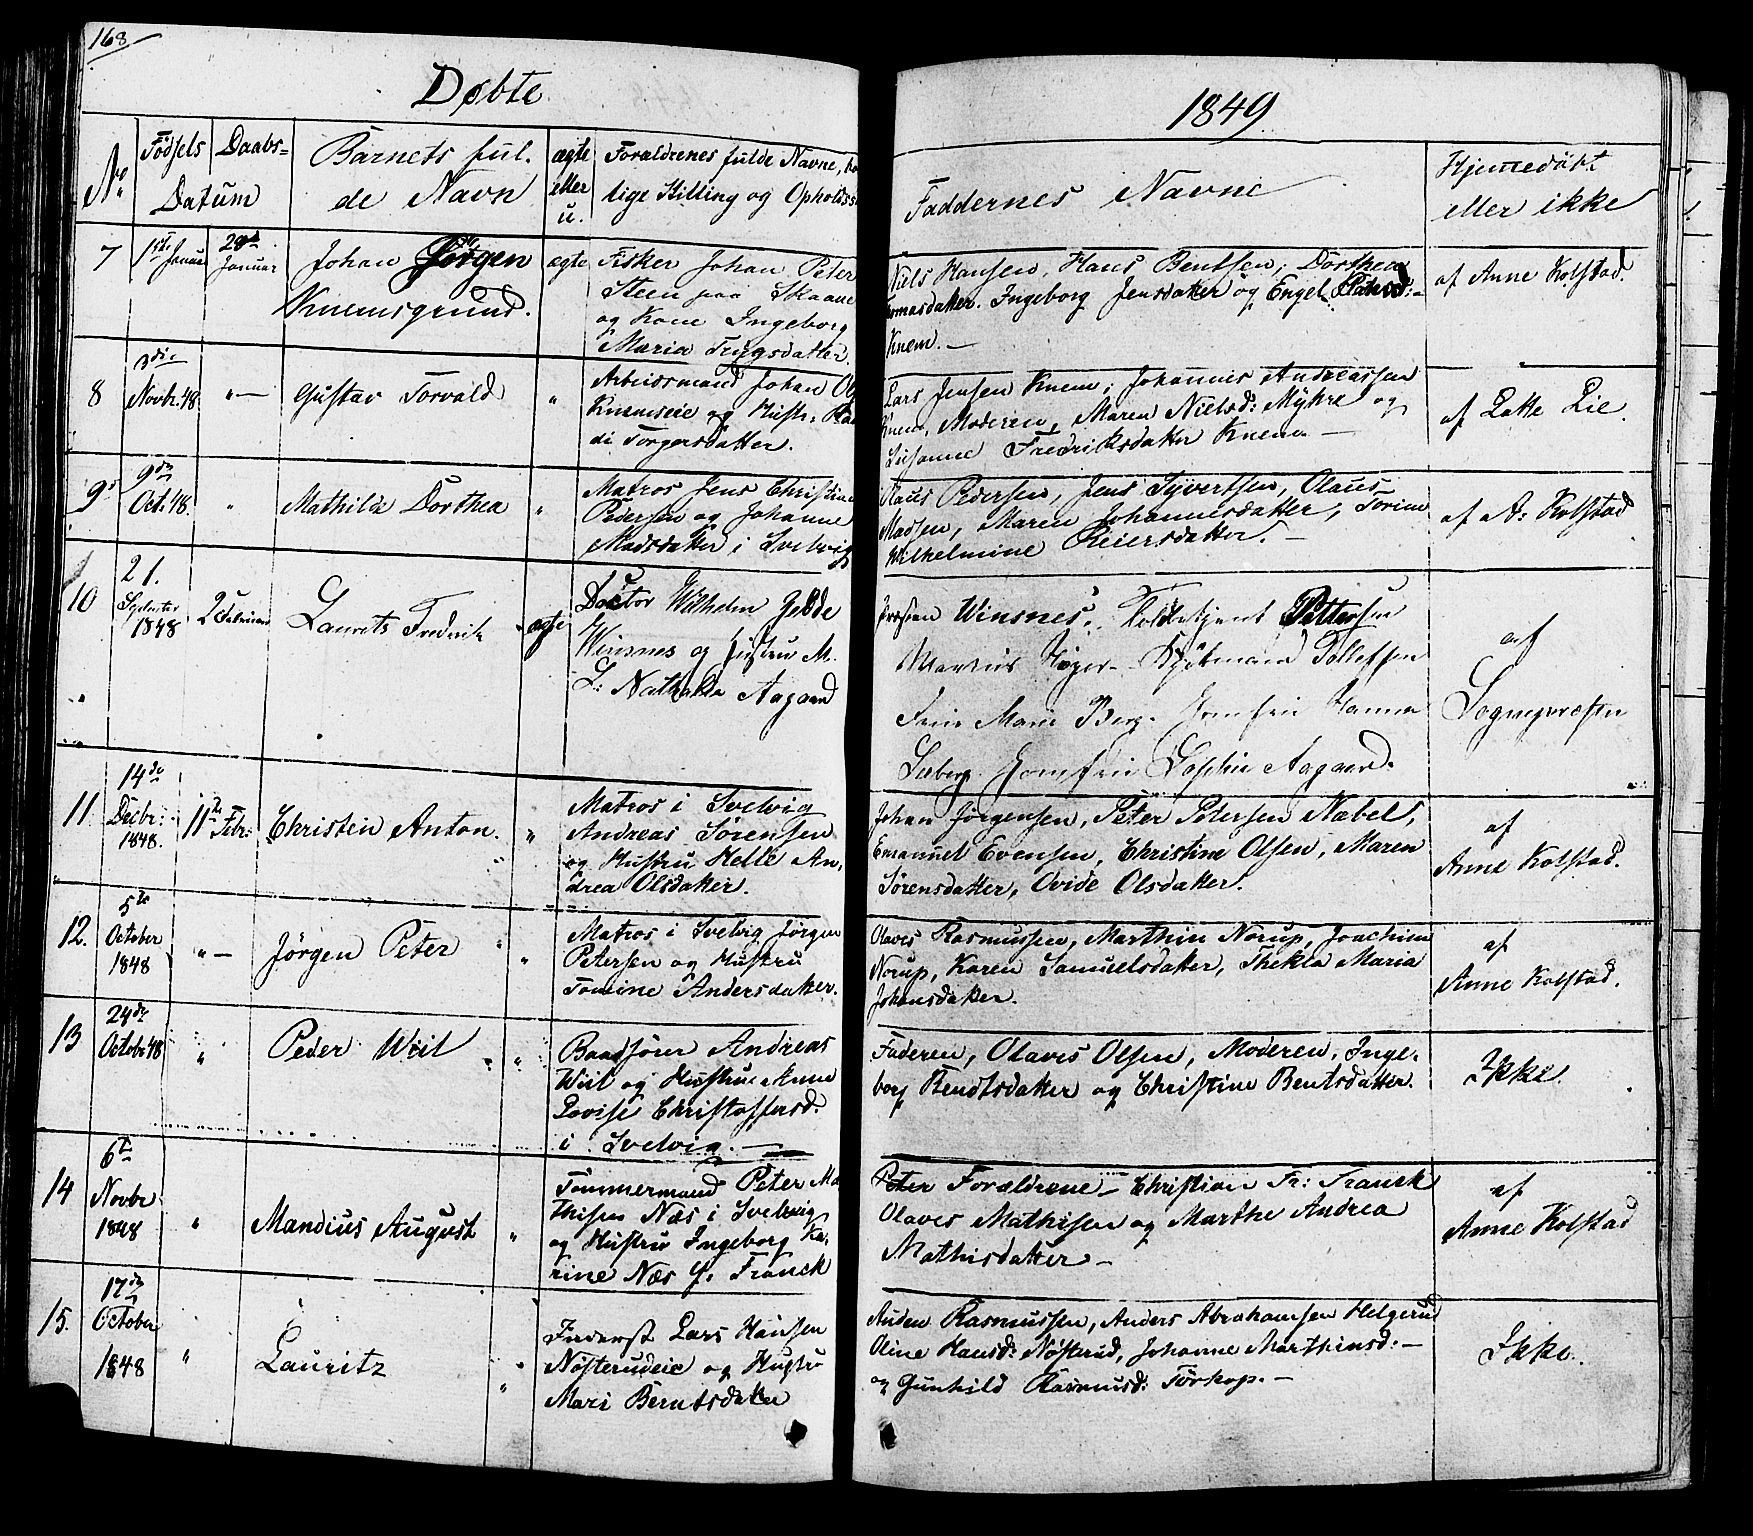 168
Døbte
1849
No.
Fødsels
Daabs-
Datum
Barnets ful-
de Navn
ægte
eller
u.
Forældrenes fulde Navne, bo
lige Stilling og Opholdsst
Faddernes Navne
Hjemmedøbt
eller ikke
7
1ste Januar
28de
Januar
Johan Jörgen
Knemsgrund.
ægte
Fisker Johan Peter
Steen paa Skaane
og Kone Ingeborg
Maria Trygsdatter.
Niels Hansen, Hans Bentsen, Dorthea
Tomasdatter. Ingeborg Jensdatter og Engel
Knem. —
af Anne Kolstad.
8
3die
Novbr. 48
" —
Gustav Torvald
"
Arbeidsmand Johan Ols
Knemseie og Hustr:
di Torgersdatter.
Lars Jensen Knem, Johannes Andreassen
Knem, Moderen, Maren Nielsd: Myhre og
Susanne Fredriksdatter Knem —
af Lotte Lie.
9
9de
Oct. 48
"
Mathilde Dorthea
"
Matros Jens Christian
Pedersen og Johanne
Madsdatter i Svelvig
Klaus Pedersen, Jens Syvertsen, Olaus
Madsen, Maren Johannesdatter, Torine
Wilhelmine Reiersdatter. —
af A: Kolstad
10
21.
September
1848
2 Februar
Laurits Frederik
ægte
Doctor Wilhelm Jelde
Winsnes og Hustru M.
L: Nathalia Aagaard
Winsnes, Toldbetjent Pettersen
Marius Høyer – Kjøbmand Tollefsen
Frue Marie Berg – Jomfru Hanna
Jomfru Sophie Aagaard.
af
Sognepræsten
11
14de
Decbr:
1848.
11te Febr:
Christin Anton.
"
Matros i Svelvig
Andreas Sørensen
og Hustru Helle An-
drea Olsdatter.
Johan Jørgensen, Peter Petersen Nabel,
Emanuel Evensen, Christine Olsen, Maren
Sørensdatter, Ovide Olsdatter.
af
Anne Kolstad.
12.
5te
October
1848
" —
Jörgen Peter
"
Matros i Svelvig Jörgen
Petersen og Hustru
Tomine Andersdatter.
Olaves Rasmussen, Marthin Norup, Joachim
Norup, Karen Samuelsdatter, Thekla Maria
Johansdatter.
af
Anne Kolstad.
13
24de
Octobr 48
"
Peder Wiil
"
Baadfører Andreas
Wiil og Hustrue Anne
Lovise Christoffersd.
i Svelvig. —
Faderen, Olaves Olsen, Moderen, Inge-
borg Bendtsdatter og Christine Bentsdatter.
Ikke.
14
6te
Novbr
1848
"
Mandius August
"
Tömmermand Peter Ma
thisen Næs i Svelvig
og Hustru Ingeborg Ka-
rine Næs f. Franck
Peter Forældrene – Christian Fr: Franck
Olaves Mathisen og Marthe Andrea
Mathisdatter –
af
Anne Kolstad
15.
17de
October
1848
"
Lauritz
"
Inderst Lars Hansen
Nøsterudeie og Hustru
Mari Berntsdatter
Auden Rasmussen, Anders Abrahamsen Helgerud
Oline Hansd: Nøsterud, Johanne Marthinsd: –
og Gunhild Rasmusd: Torkop. –
Ikke.